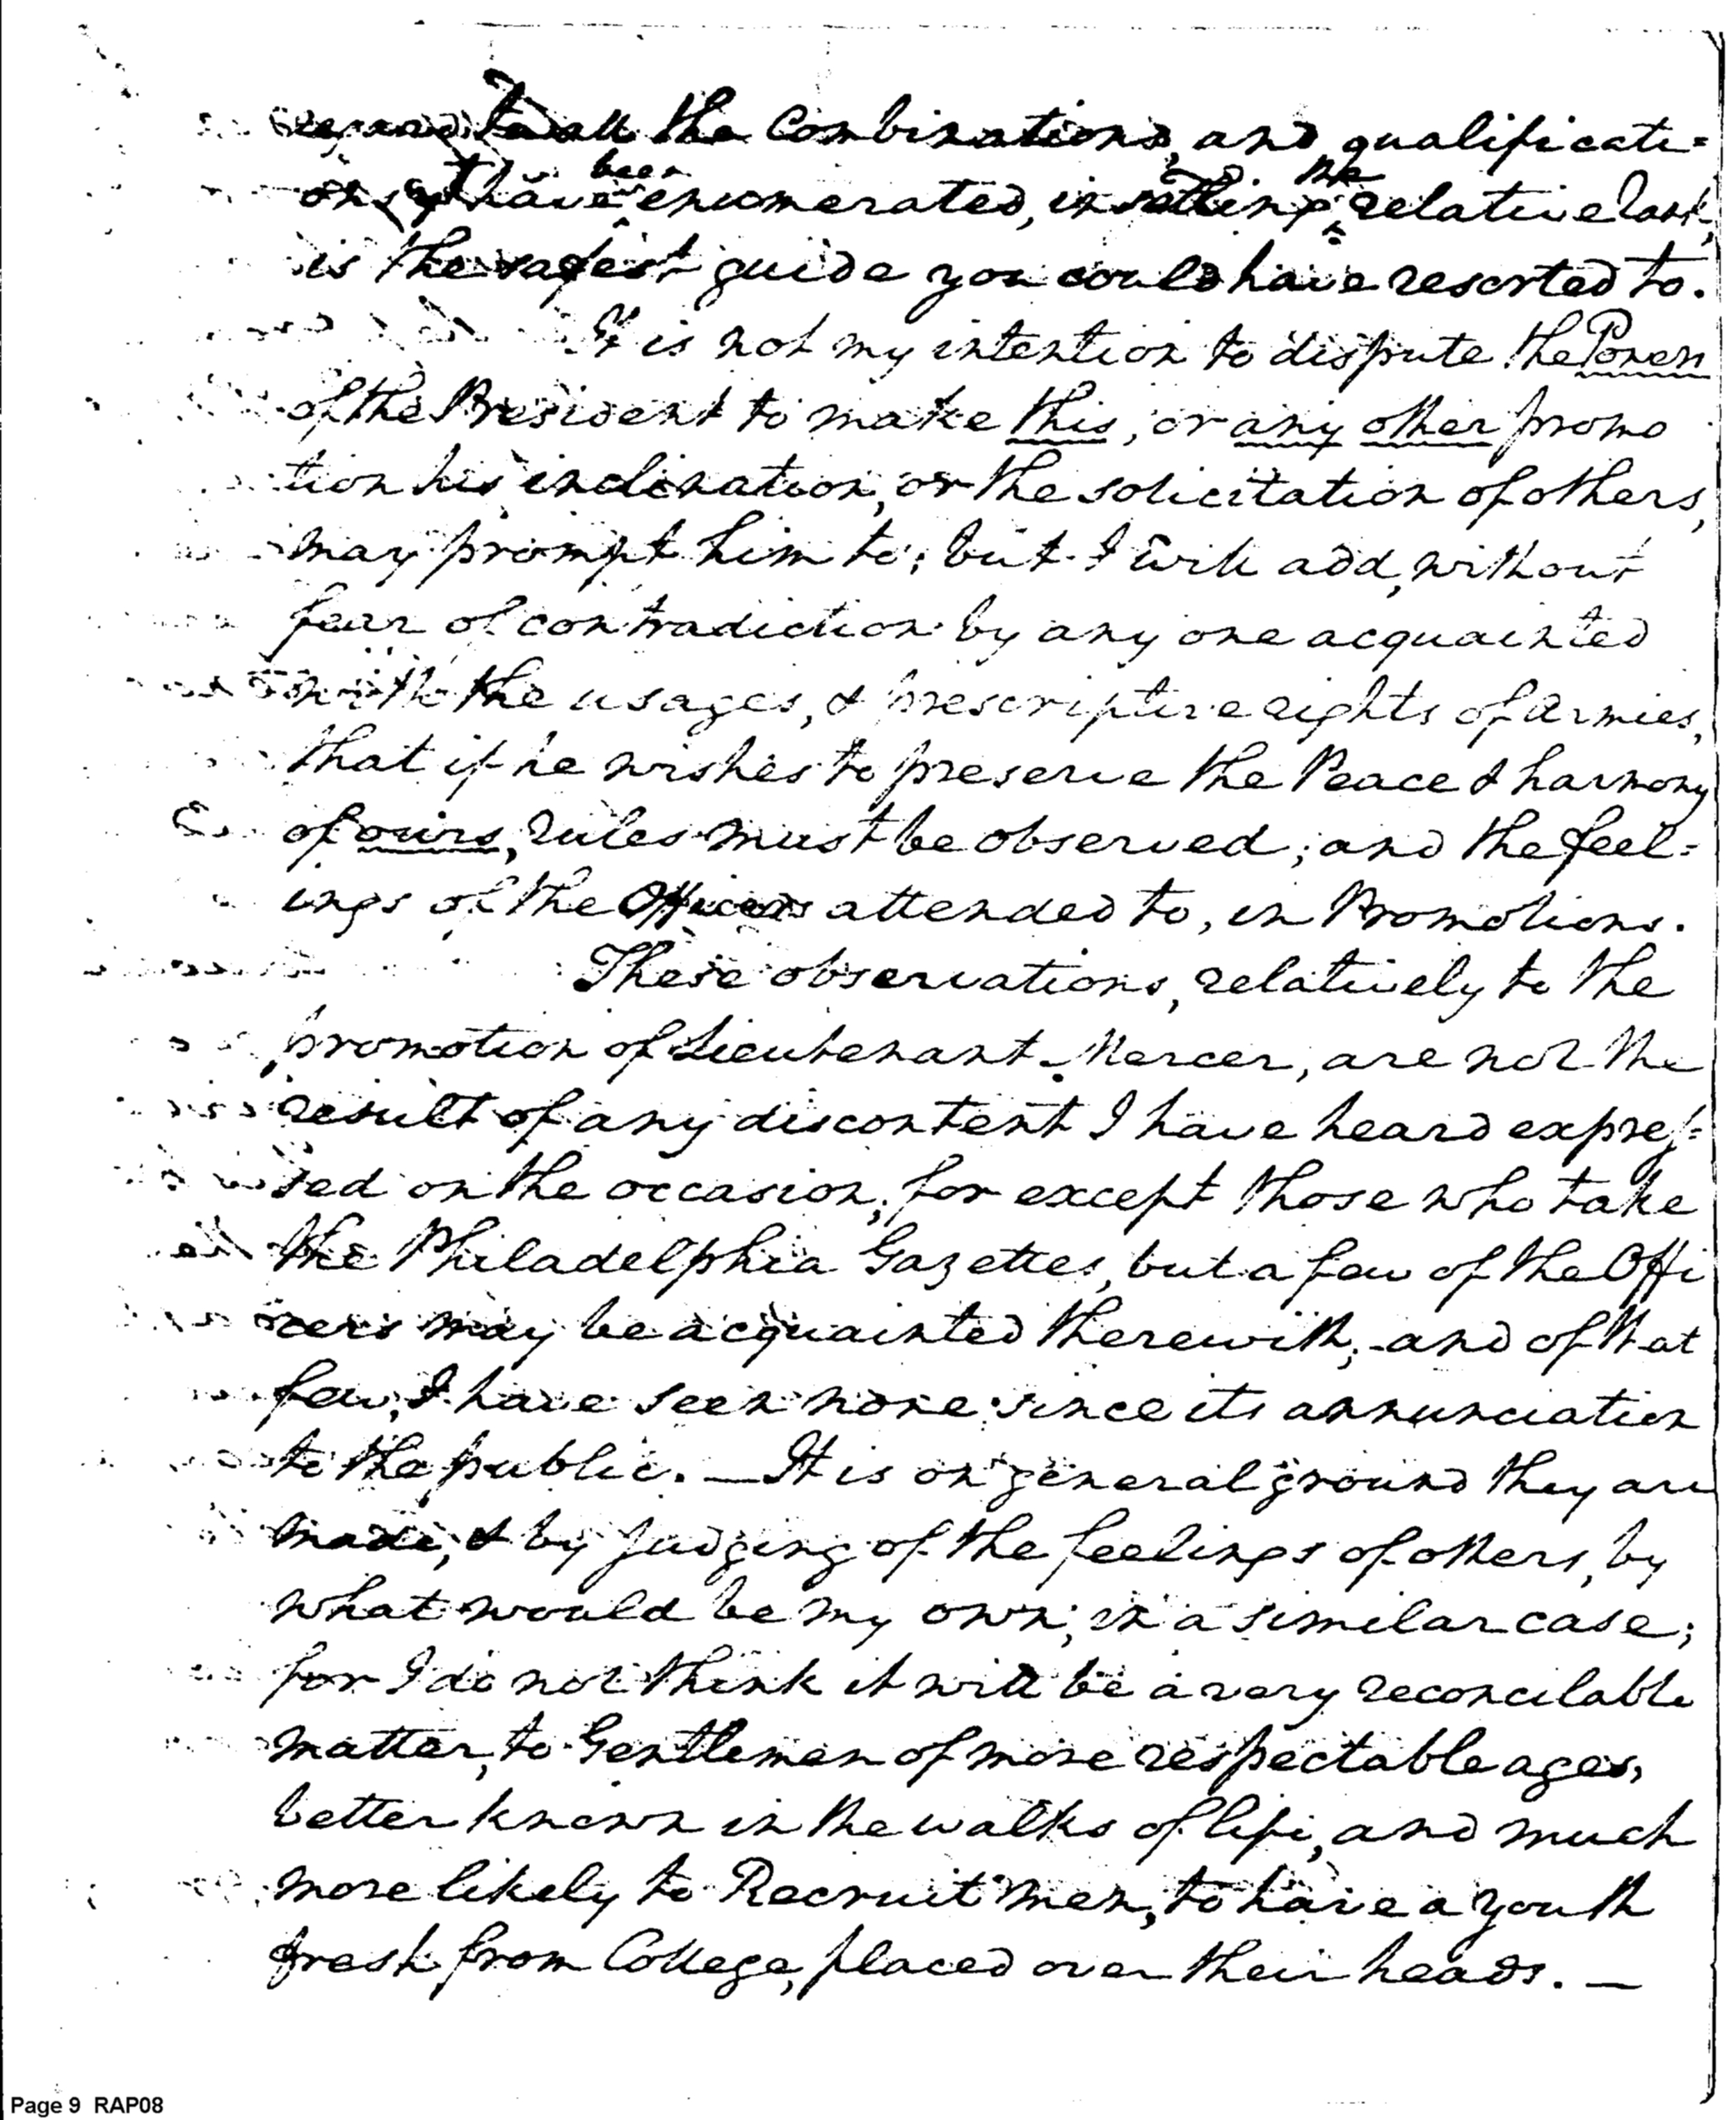 regard to all the Combinations, and qualificati=
ons that have been enumerated, in settling the relative rank,
is the safest guide you could have resorted to.
It is not my intention to dispute the Power
of the President to make this, or any other promo
tion his inclination, or the solicitation of others,
may prompt him to; but I will add, without
fear of contradiction by any one acquainted
with the usages, & prescriptive rights of Armies,
that if he wishes to preserve the Peace & harmony
of ours, rules must be observed; and the feel=
ings of the Officers attended to, in Promotions.
These observations, relatively to the
promotion of Lieutenant Mercer, are not the
result of any discontent I have heard expres=
sed on the occasion; for except those who take
the Philadelphia Gazettes, but a few of the Offi
cers may be acquainted therewith; and of that
few, I have seen none since its annunciation
to the public. — It is on general ground they are
made, & by judging of the feelings of others, by
what would be my own, in a similar case;
for I do not think it will be a very reconcilable
matter, to Gentlemen of more respectable ages,
better known in the walks of life, and much
more likely to Recruit men, to have a youth
fresh from College, placed over their heads. —
Page 9 RAP08